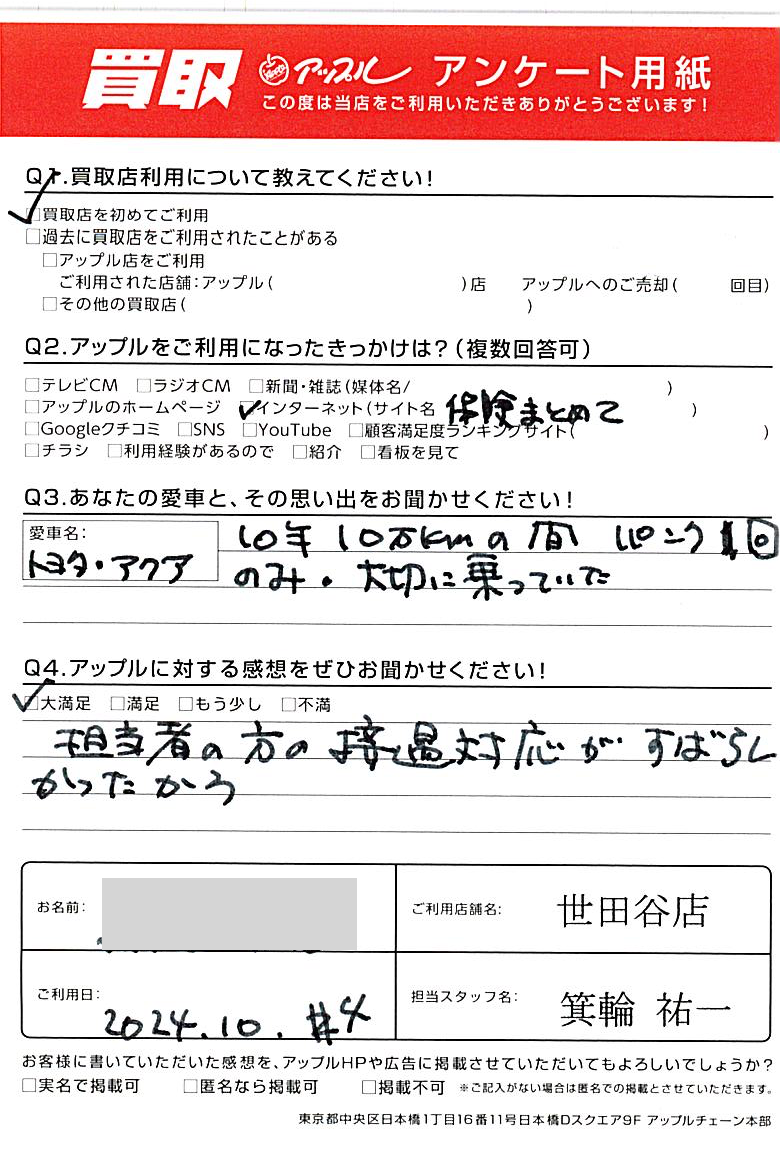 買取 アップル アンケート用紙
この度は当店をご利用いただきありがとうございます!
Q1.買取店利用について教えてください!
□買取店を初めてご利用
□過去に買取店をご利用されたことがある
□アップル店をご利用
ご利用された店舗:アップル( )店 アップルへのご売却( 回目)
□その他の買取店( )
Q2.アップルをご利用になったきっかけは?(複数回答可)
□テレビCM □ラジオCM □新聞・雑誌(媒体名/ )
□アップルのホームページ □インターネット(サイト名 体険まとめて )
□Googleクチコミ □SNS □YouTube □顧客満足度ランキングサイト( )
□チラシ □利用経験があるので □紹介 □看板を見て
Q3.あなたの愛車と、その思い出をお聞かせください!
愛車名:
トヨタ・アクア
10年10万kmの間 パンク1回
のみ。大切に乗っていた
Q4.アップルに対する感想をぜひお聞かせください!
□大満足 □満足 □もう少し □不満
担当者の方の接遇対応がすばらし
かったから
お名前:
ご利用店舗名: 世田谷店
ご利用日: 2024.10.4
担当スタッフ名: 箕輪 祐一
お客様に書いていただいた感想を、アップルHPや広告に掲載させていただいてもよろしいでしょうか?
□実名で掲載可 □匿名なら掲載可 □掲載不可 ※ご記入がない場合は匿名での掲載とさせていただきます。
東京都中央区日本橋1丁目16番11号日本橋Dスクエア9F アップルチェーン本部